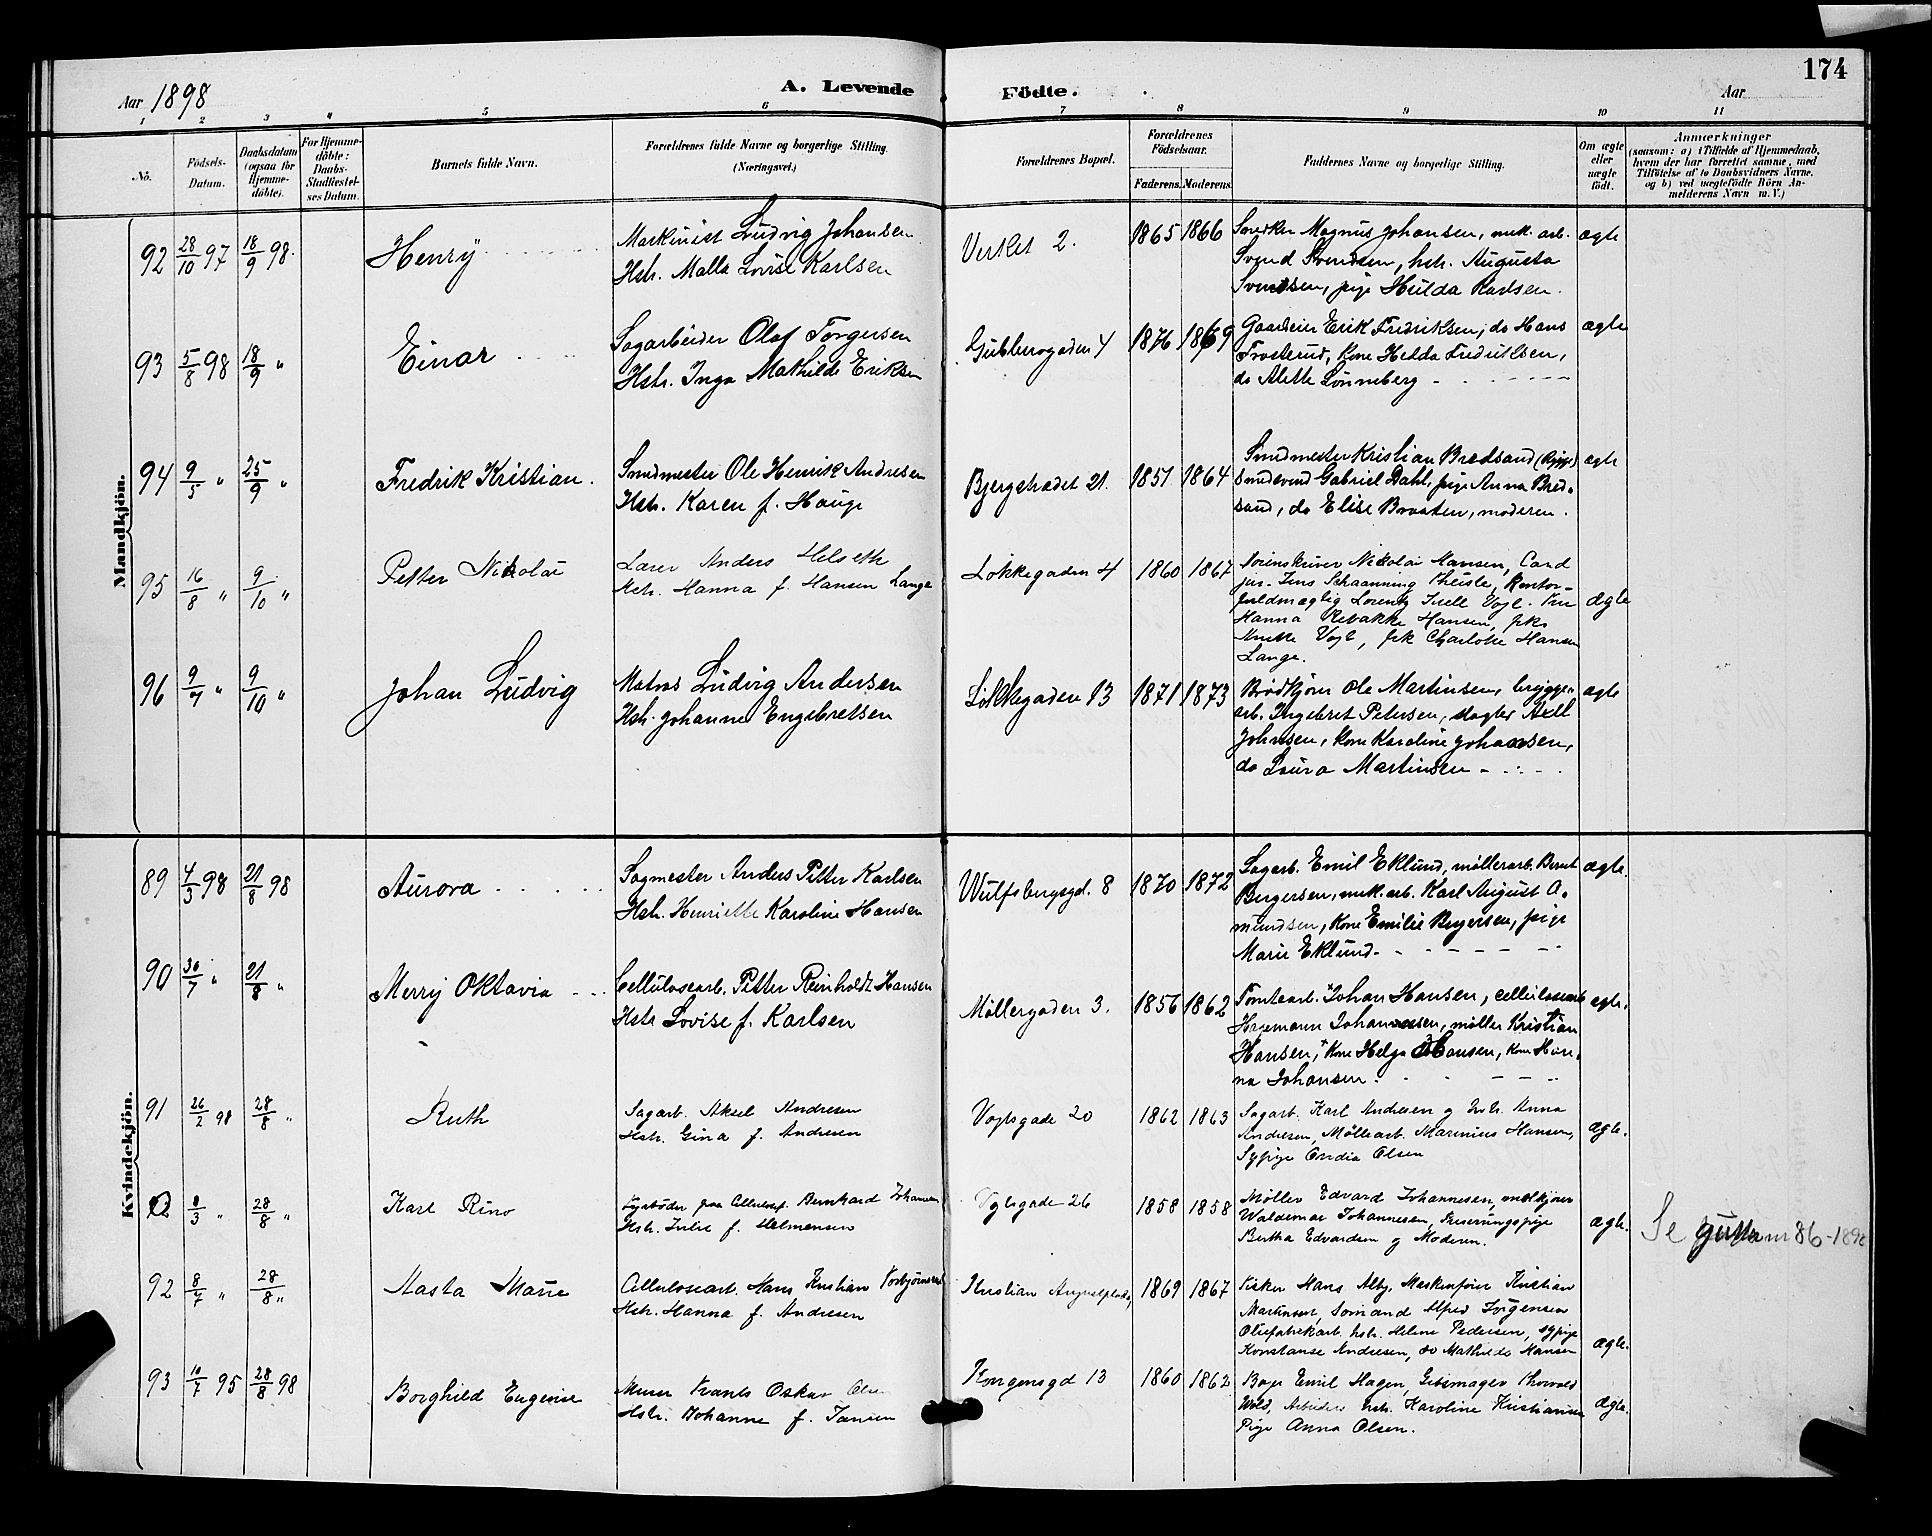 174
Aar 1898
A. Levende Födte.
Aar
1 2 3 4 5 6 7 8 9 10 11
No.
Födsels-Datum.
Daabsdatum (ogsaa for Hjemme-döbte).
For Hjemme-döbte: Daabs-Stadfæstel-ses Datum.
Barnets fulde Navn.
Forældrenes fulde Navne og borgerlige Stilling. (Næringsvei.)
Forældrenes Bopæl.
Forældrenes Födselsaar.
Faderens. Moderens.
Faddernes Navne og borgerlige Stilling.
Om ægte eller uægte födt.
Anmærkninger
(saasom: a) i Tilfælde af Hjemmedaab, hvem der har forrettet samme, med Tilföielse af to Daabsvidners Navne, og b) ved uægtefödte Börn An-melderens Navn m. V.)
Mandkjön.
92 28/10 97 18/9 98 Henry
Maskinist Ludvig Johansen
Hstr. Malla Lovise Karlsen
Verket 2. 1865 1866
Snedker Magnus Johansen, mek. arb.
Svend Svendsen, hstr. Augusta
Svendsen, pige Hulda Karlsen.
ægte
93 5/8 98 18/9 " Einar
Sagarbeider Olaf Torgersen
Hstr. Inga Mathilde Eriksen
4 1876 1869
Gaardeier Erik Fredriksen, do Hans
Trosterud, Kone Hedda Fredriksen,
do Alette Lønneberg
ægte
94 9/5 " 25/9 " Fredrik Kristian.
Smedmester Ole Henrik Andresen
Hstr. Karen f. Hauge
Bjergstrædet 21. 1851 1864
Smedmester Kristian Bredsand
Smedsvend Gabriel Dahl, pige Anna Bred-
sand, do Elise Braaten, moderen.
ægte
95 16/8 " 9/10 " Petter Nikolai
Lærer Anders Helseth
Hstr. Hanna f. Hansen Lange
Løkkegaden 4 1860 1867
Sorenskriver Nikolai Hansen, Cand
jur. Jens Schaanning Theisle, Kontor-
fuldmægtig Lorentz Juell Vogt. Fru
Hanna Rebakke Hansen, frk.
Vogt, frk Charlotte Hansen
Lange.
ægte
96 9/7 " 9/10 " Johan Ludvig
Matros Ludvig Andersen
Hstr. Johanne Engebretsen
Løkkegaden 13 1871 1873
Brødkjører Ole Martinsen, brygge-
arb. Ingebret Petersen, slagter Axel
Johnsen, Kone Karoline Johansen,
do Laura Martinsen
ægte
Kvindekjön.
89 4/3 98 21/8 98 Aurora
Sagmester Anders Petter Karlsen
Hstr. Henriette Karoline Hansen
Wulfsbergsgd. 8 1870 1872
Sagarb. Emil Eklund, møllerarb. Bernt
Bergersen, mek. arb. Karl August A-
mundsen, Kone Emilie Bergersen, pige
Marie Eklund
ægte.
90 30/7 " 21/8 " Merry Oktavia
Cellulosearb. Petter Reinholdt Hansen
Hstr Lovise f. Karlsen
Møllergaden 3. 1856 1862
Tomtearb. Johan Hansen, cellulosearb
Johannesen, møller Kristian
Hansen, Kone Helga Hansen, Kone Han-
na Johansen.
ægte.
91 26/2 98 28/8 " Ruth
Sagarb. Aksel Andresen
Hstr. Gina f. Andresen
Vogtsgade 20 1862 1863
Sagarb. Karl Andresen og hstr. Anna
Andresen, Møllearb. Marinius Hansen,
Sypige Ovidia Olsen
ægte.
8/3 " 28/8 " Karl Rino
Fyrbøder paa Cellulosef. Bernhard Johannesen
Hstr. Julie f. Helmensen
Vogtsgade 26 1858 1858
Møller Edvard Johannesen, melkjører
Waldemar Johannesen,
Bertha Edvardsen og Moderen.
ægte.
Se gutte nr 86 - 1898
92 8/7 " 28/8 " Marie
Cellulosearb. Hans Kristian
Hstr. Hanna f. Andresen
Kristian 1869 1867
Fisker Hans Alby, Kristian
Martinsen, Sømand Alfred Jørgensen
hstr. Helene Pedersen, sypige
Konstanse Andresen, do Mathilde Hansen
ægte.
93 10/7 95 28/8 98 Borghild Eugenie
Murer Frants Oskar
Hstr. Johanne f. Jansen
Kongensgd 13 1860 1862
Emil Hagen, Thorvald
Wold, hstr. Karoline Kristiansen
Pige Anna Olsen.
ægte.